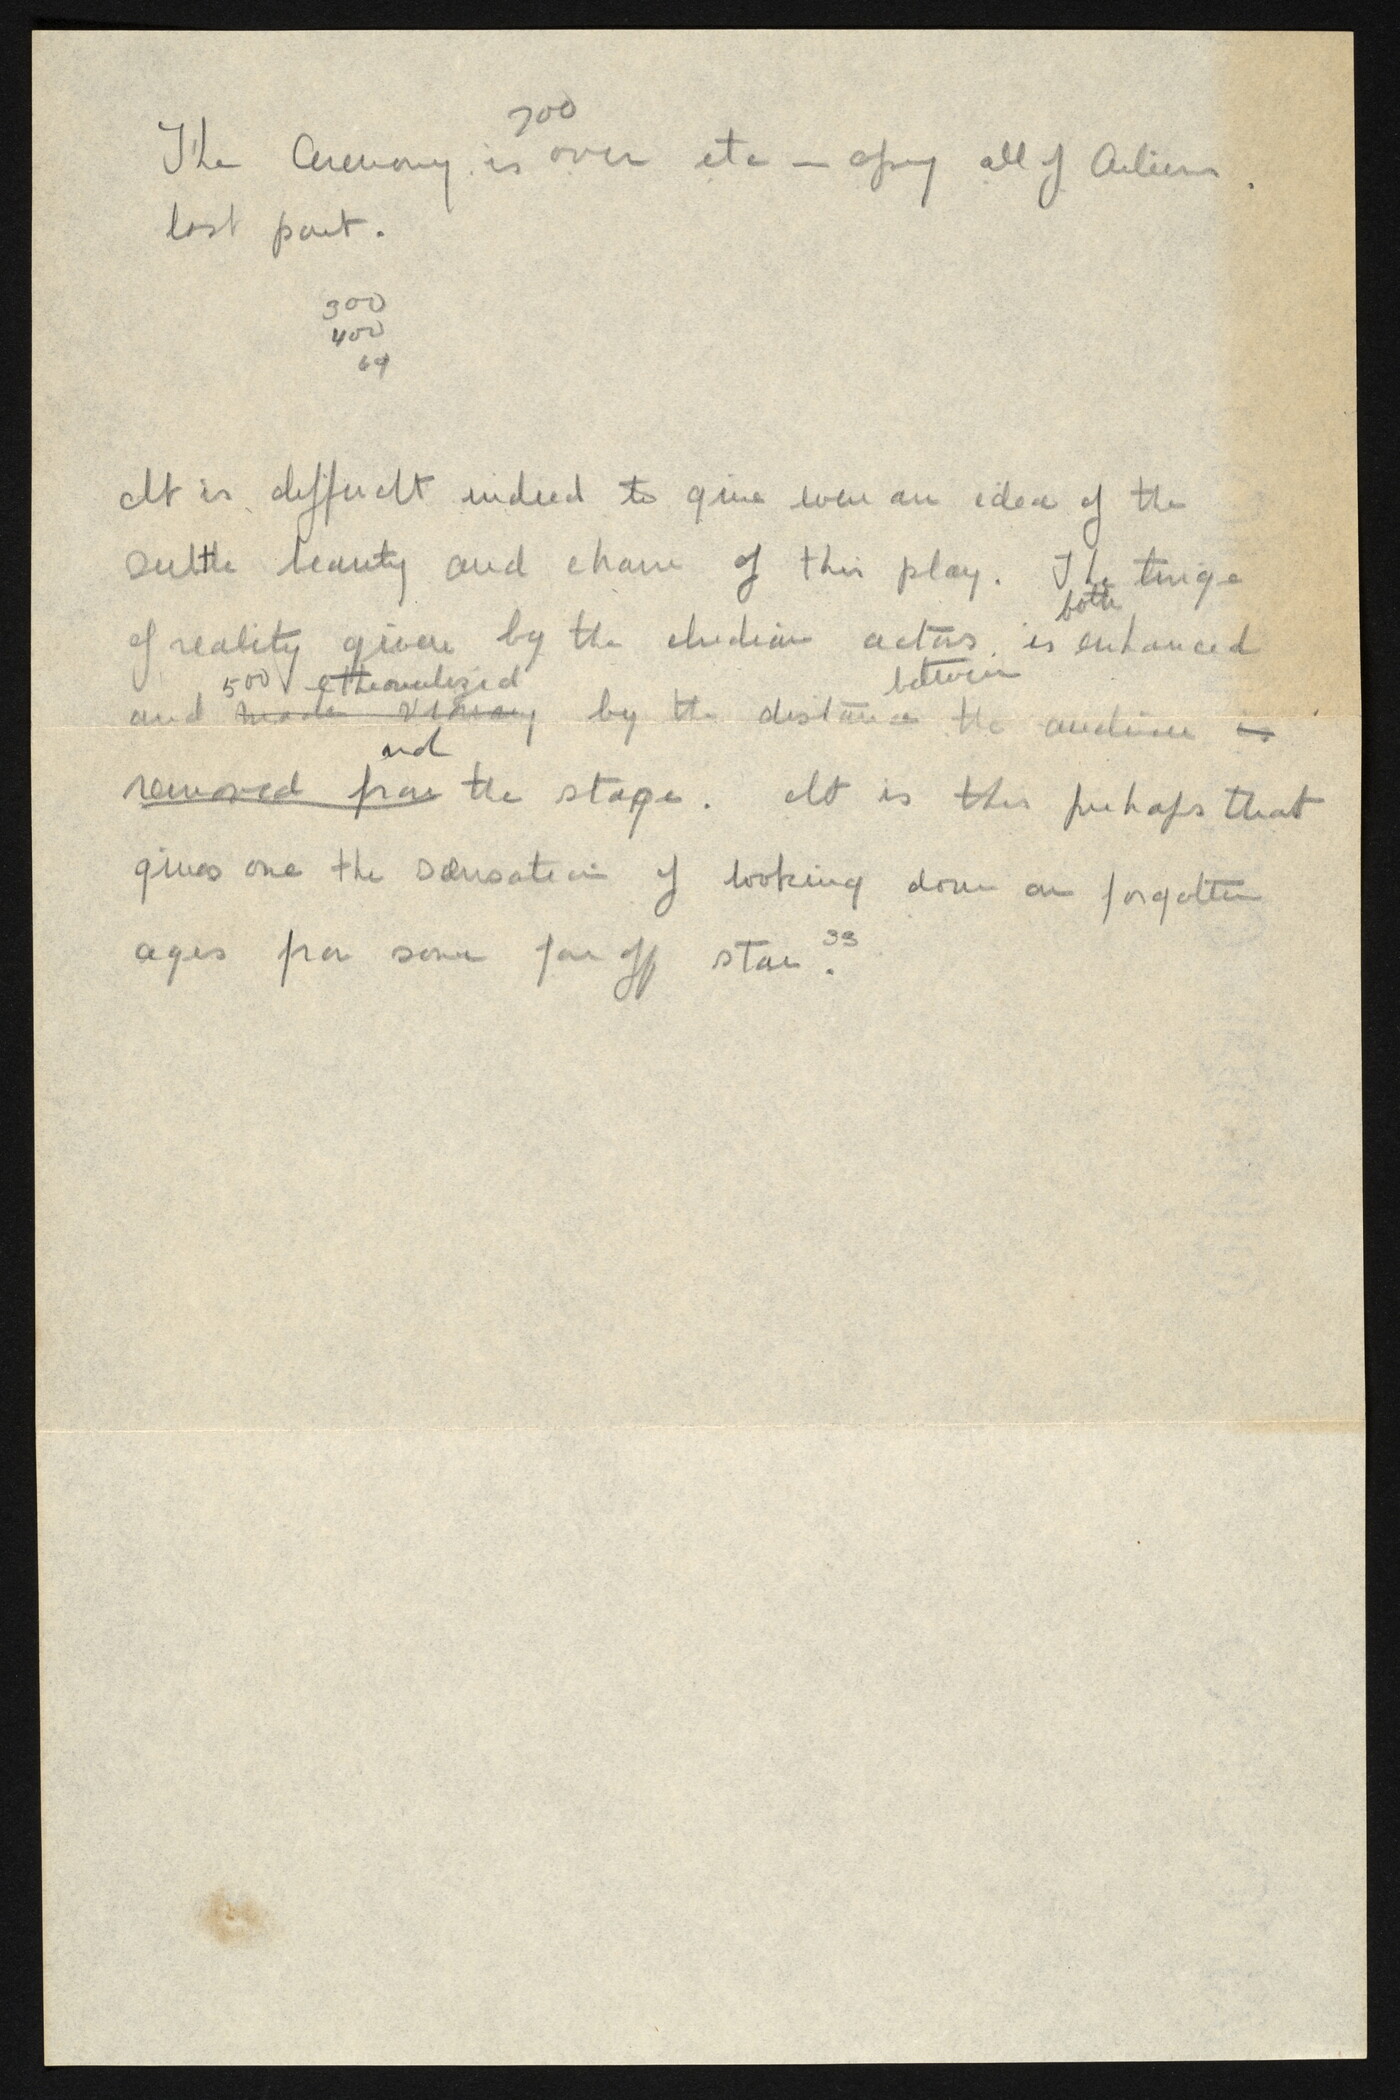 700
The Ceremony is over etc — copy all of
last part.
300
400
69
It is difficult indeed to give even an idea of the
subtle beauty and charm of this play. The tinge
both
of reality given by the Indian actors is enhanced
500 etherealized between
and made visionary by the distance the audience is
and
removed from the stage. It is this perhaps that
gives one the sensation of looking down on forgotten
ages from some far off star. 33